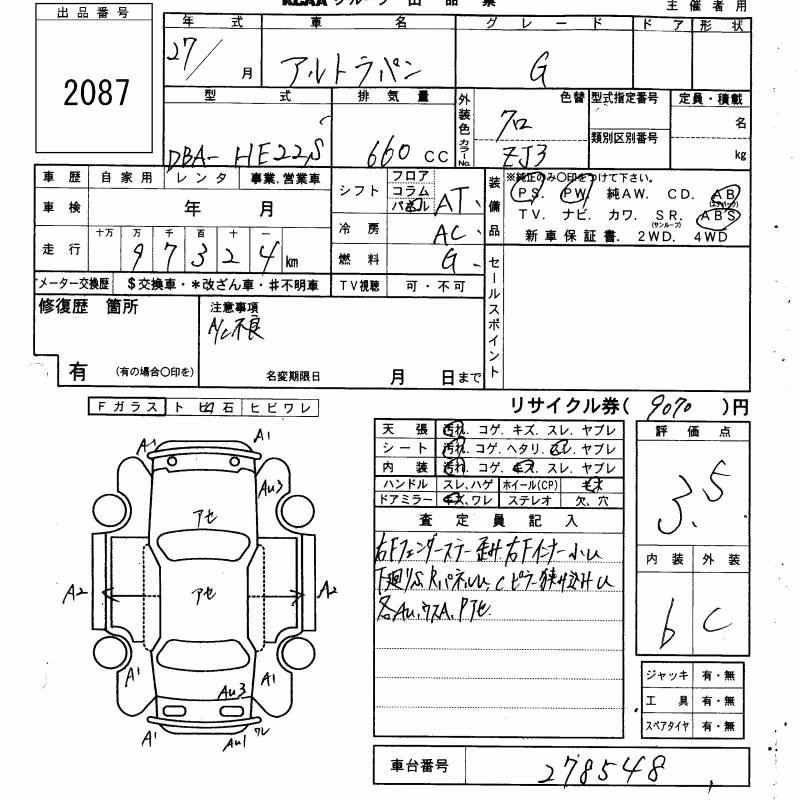 KCAA グループ 出品票
主催者用
出品番号
2087
年式 車名 グレード ドア 形状
27/ 月 アルトラパン G
型式 排気量 外装色 カラーNo. 色替 型式指定番号 定員・積載
DBA-HE22S 660 CC クロ ZJ3 類別区別番号 名 kg
車歴 自家用 レンタ 事業.営業車
車検 年 月
走行 十万 万 千 百 十 一
97324 km
メーター交換歴 $交換車・*改ざん車・#不明車
シフト フロア コラム パネル AT
冷房 AC
燃料 G
TV視聴 可・不可
装備品 ※純正のみ○印をつけて下さい。
PS. PW. 純AW. CD. AB(エアバッグ)
TV. ナビ. カワ. SR.(サンルーフ) ABS
新車保証書. 2WD. 4WD
セールスポイント
修復歴 箇所
有 (有の場合○印を)
注意事項
A/C不良
名変期限日 月 日まで
リサイクル券( 9070 )円
Fガラス トビ石 ヒビワレ
天張 汚れ. コゲ. キズ. スレ. ヤブレ
シート 汚れ. コゲ. ヘタリ. スレ. ヤブレ
内装 汚れ. コゲ. キズ. スレ. ヤブレ
ハンドル スレ、ハゲ ホイール(CP) キズ
ドアミラー キズ、ワレ ステレオ 欠、穴
査定員記入
右Fフェンダーステー歪み.右Fインナー小U
下廻りS.RパネルU、Cピラー挟み込みU
各AU.ウスA.Pアセ
評価点
3.5
内装 外装
6 C
ジャッキ 有・無
工具 有・無
スペアタイヤ 有・無
車台番号 278548
A1 A1
AU3
アセ
A2 アセ A2
A1 AU3 A1
A1 AU1 ワレ